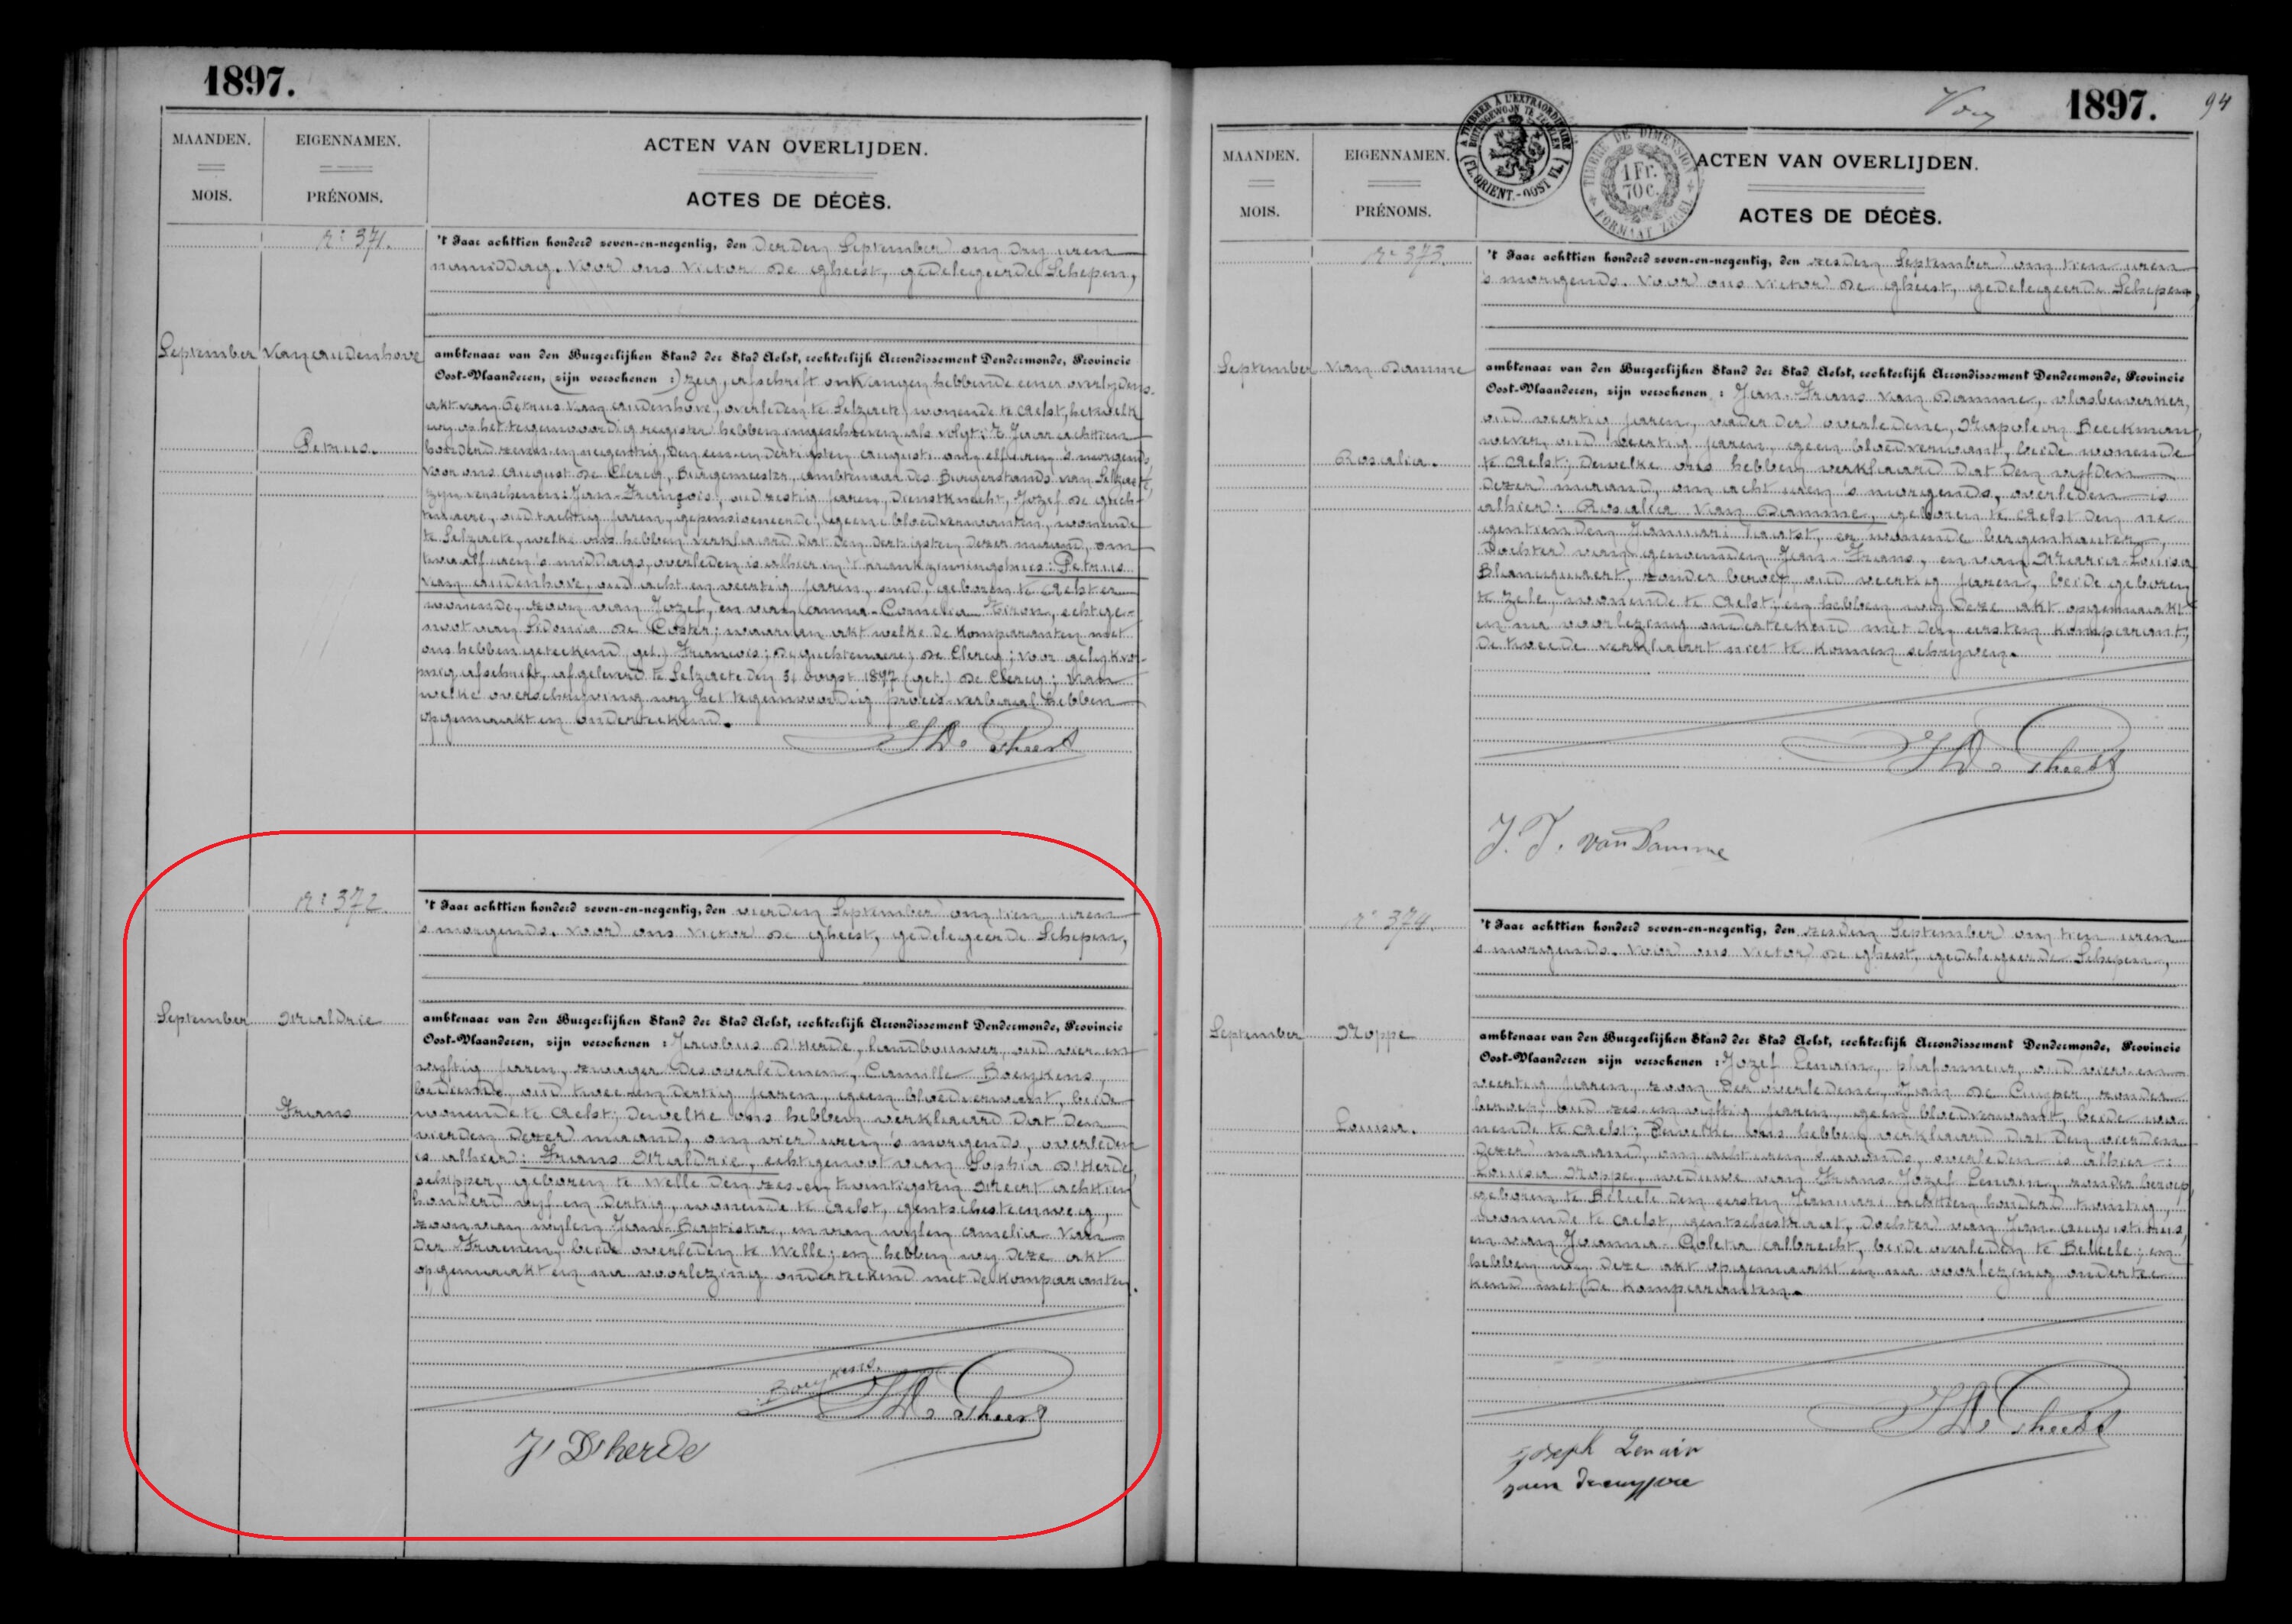 1897.
MAANDEN.
MOIS.
EIGENNAMEN.
PRÉNOMS.
ACTEN VAN OVERLIJDEN.
ACTES DE DÉCÈS.
n° 371.
't Jaar achttien honderd zeven-en-negentig, den derden September om dry uren
namiddag. Voor ons Victor De Gheest, gedelegeerde Schepen,
September
Van audenhove
Petrus.
ambtenaar van den Burgerlijken Stand der Stad Aelst, rechterlijk Arrondissement Dendermonde, Provincie
Oost-Vlaanderen, (zijn verschenen :) zeg, afschrift ontvangen hebbende eener overlydens-
akt van Petrus Van audenhove, overleden te Selzaete, wonende te Aelst, hetwelk
wy op het tegenwoordig register hebben ingeschreven als volgt: 't Jaar achttien
honderd zeven en negentig, den een en dertigsten augusti om elf uren 's morgends,
voor ons August De Clercq, Burgemeester, ambtenaar des Burgerstands van Selzaete,
zyn verschenen: Jan François, oud zestig jaren, dienstknecht, Jozef De Guch-
tenaere, oud tachtig jaren, gepensioneerde, geene bloedverwanten, wonende
te Selzaete, welke ons hebben verklaard dat den dertigsten dezer maand, om
twaalf uren 's middags, overleden is alhier in 't krankzinnigshuis: Petrus
Van audenhove, oud acht en veertig jaren, smid, geboren te Aelst en
wonende, zoon van Jozef, en van Anna-Cornelia Tiron, echtge-
noot van Sidonia De Coster; waarvan akt welke de komparanten met
ons hebben geteekend (get.) François; De Guchtenaere; De Clercq; Voor gelykvor-
mig afschrift, afgeleverd te Selzaete den 31 Oogst 1897 (get.) De Clercq; Van
welke overschryving wy het tegenwoordig proces-verbaal hebben
opgemaakt en onderteekend.
VDe Gheest
n° 372.
't Jaar achttien honderd zeven-en-negentig, den vierden September om tien uren
's morgends. Voor ons Victor De Gheest, gedelegeerde Schepen,
September
Maldrie
Frans
ambtenaar van den Burgerlijken Stand der Stad Aelst, rechterlijk Arrondissement Dendermonde, Provincie
Oost-Vlaanderen, zijn verschenen : Jacobus D'Herde, landbouwer, oud vier en
vyftig jaren, zwager des overledenen, Camille Boeykens,
bediende, oud twee en dertig jaren, geen bloedverwant, beide
wonende te Aelst; Dewelke ons hebben verklaard dat den
vierden dezer maand, om vier uren 's morgends, overleden
is alhier: Frans Maldrie, echtgenoot van Sophia D'Herde,
schipper, geboren te Welle den zes en twintigsten Meert achttien
honderd vyf en dertig, wonende te Aelst, Gentschesteenweg,
zoon van wylen Jan-Baptista, en van wylen Amelia Van
Der Fraenen, beide overleden te Welle; en hebben wy deze akt
opgemaakt en na voorlezing onderteekend met de komparanten.
Boeykens.
VDe Gheest
J. D'herde
Voy
1897.
94
A TIMBRER À L'EXTRAORDINAIRE
BUITENGEWOON TE ZEGELEN
(FL. ORIENT.-OOST VL.)
TIMBRE DE DIMENSION
1 Fr.
70 C.
FORMAAT ZEGEL
MAANDEN.
MOIS.
EIGENNAMEN.
PRÉNOMS.
ACTEN VAN OVERLIJDEN.
ACTES DE DÉCÈS.
n° 373.
't Jaar achttien honderd zeven-en-negentig, den zesden September om tien uren
's morgends. Voor ons Victor De Gheest, gedelegeerde Schepen,
September
Van Damme
Rosalia.
ambtenaar van den Burgerlijken Stand der Stad Aelst, rechterlijk Arrondissement Dendermonde, Provincie
Oost-Vlaanderen, zijn verschenen : Jan-Frans Van Damme, vlasbewerker,
oud veertig jaren, vader der overledene, Napoleon Beeckman,
wever, oud veertig jaren, geen bloedverwant, beide wonende
te Aelst; Dewelke ons hebben verklaard dat den vyfden
dezer maand, om acht uren 's morgends, overleden is
alhier: Rosalia Van Damme, geboren te Aelst den ne-
gentienden Januari laatst, er wonende bergemkauter,
Dochter van genoemden Jan-Frans, en van Maria-Louisa
Blancquaert, zonder beroep, oud veertig jaren, beide geboren
te Zele, wonende te Aelst; en hebben wy deze akt opgemaakt
en na voorlezing onderteekend met den eersten komparant;
de tweede verklaart niet te konnen schryven.
VDe Gheest
J. F. van Damme
n° 374.
't Jaar achttien honderd zeven-en-negentig, den zesden September om tien uren
's morgends. Voor ons Victor De Gheest, gedelegeerde Schepen,
September
Noppe
Louisa.
ambtenaar van den Burgerlijken Stand der Stad Aelst, rechterlijk Arrondissement Dendermonde, Provincie
Oost-Vlaanderen zijn verschenen : Jozef Lenain, plafonneur, oud vier en
veertig jaren, zoon der overledene, Jan De Cuyper, zonder
beroep, oud zes en vyftig jaren, geen bloedverwant, beide wo-
nende te Aelst; Dewelke ons hebben verklaard dat den vierden
dezer maand, om acht uren 's avonds, overleden is alhier:
Louisa Noppe, weduwe van Frans-Jozef Lenain, zonder beroep,
geboren te Belcele den eersten Januari achttien honderd twintig,
wonende te Aelst, Gentschestraat, Dochter van Jan-Augustinus,
en van Joanna-Coleta Calbrecht, beide overleden te Belcele; en
hebben wy deze akt opgemaakt en na voorlezing ondertee-
kend met de komparanten.
VDe Gheest
Joseph Lenain
Jaen Decuypere